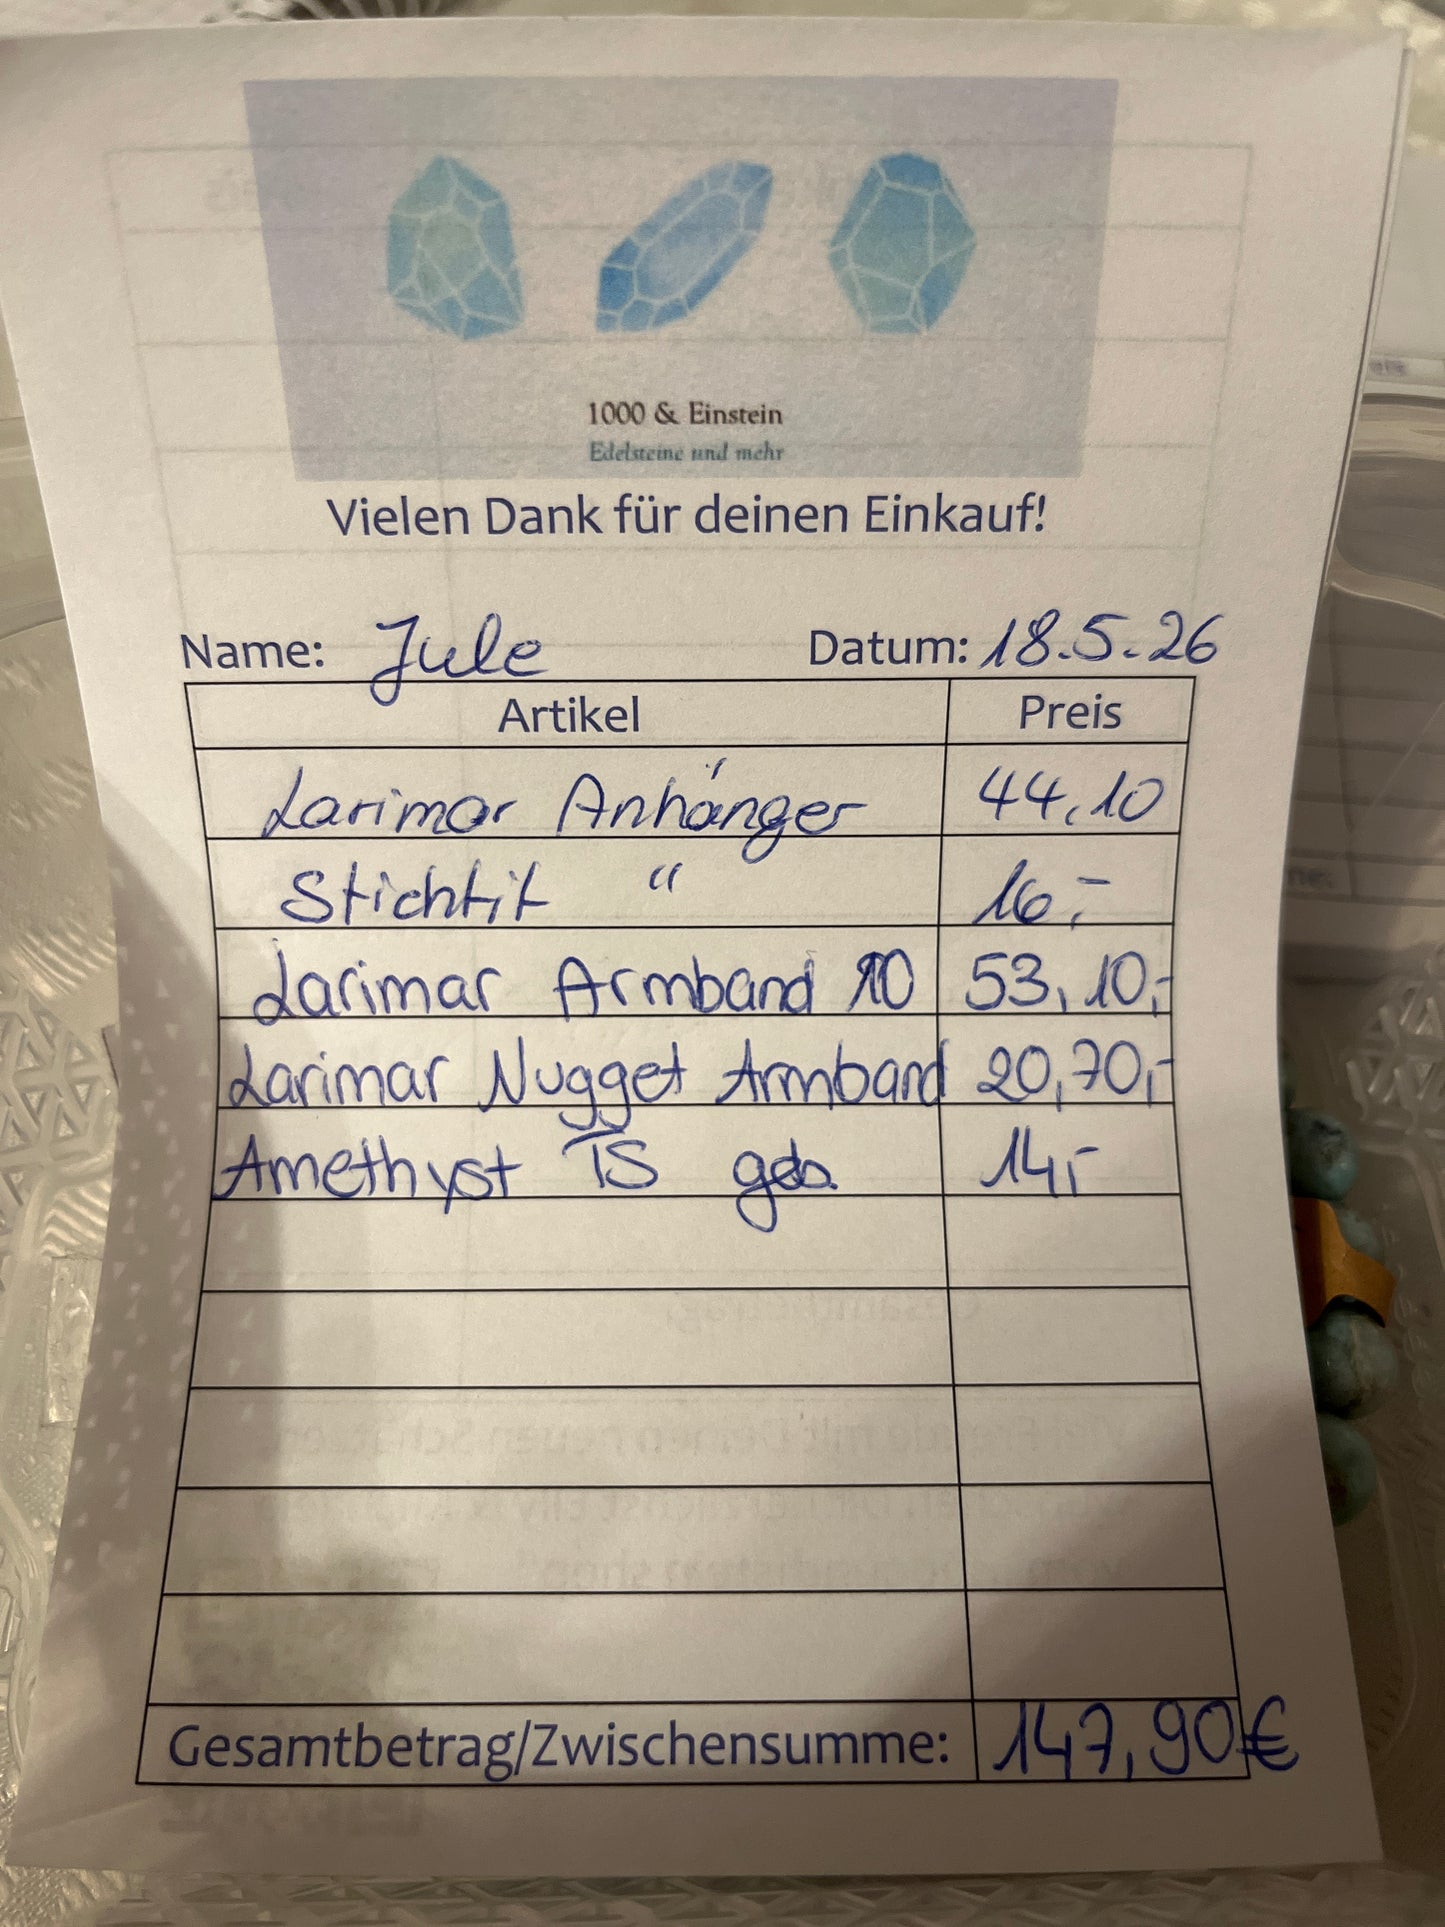 1000 & Einstein
Edelsteine und mehr
Vielen Dank für deinen Einkauf!
Name: Jule Datum: 18.5.26
Artikel Preis
Larimar Anhänger 44,10
Stichtit " 16,-
Larimar Armband 10 53,10,-
Larimar Nugget Armband 20,70,-
Amethyst TS geb. 14,-
Gesamtbetrag/Zwischensumme: 147,90€